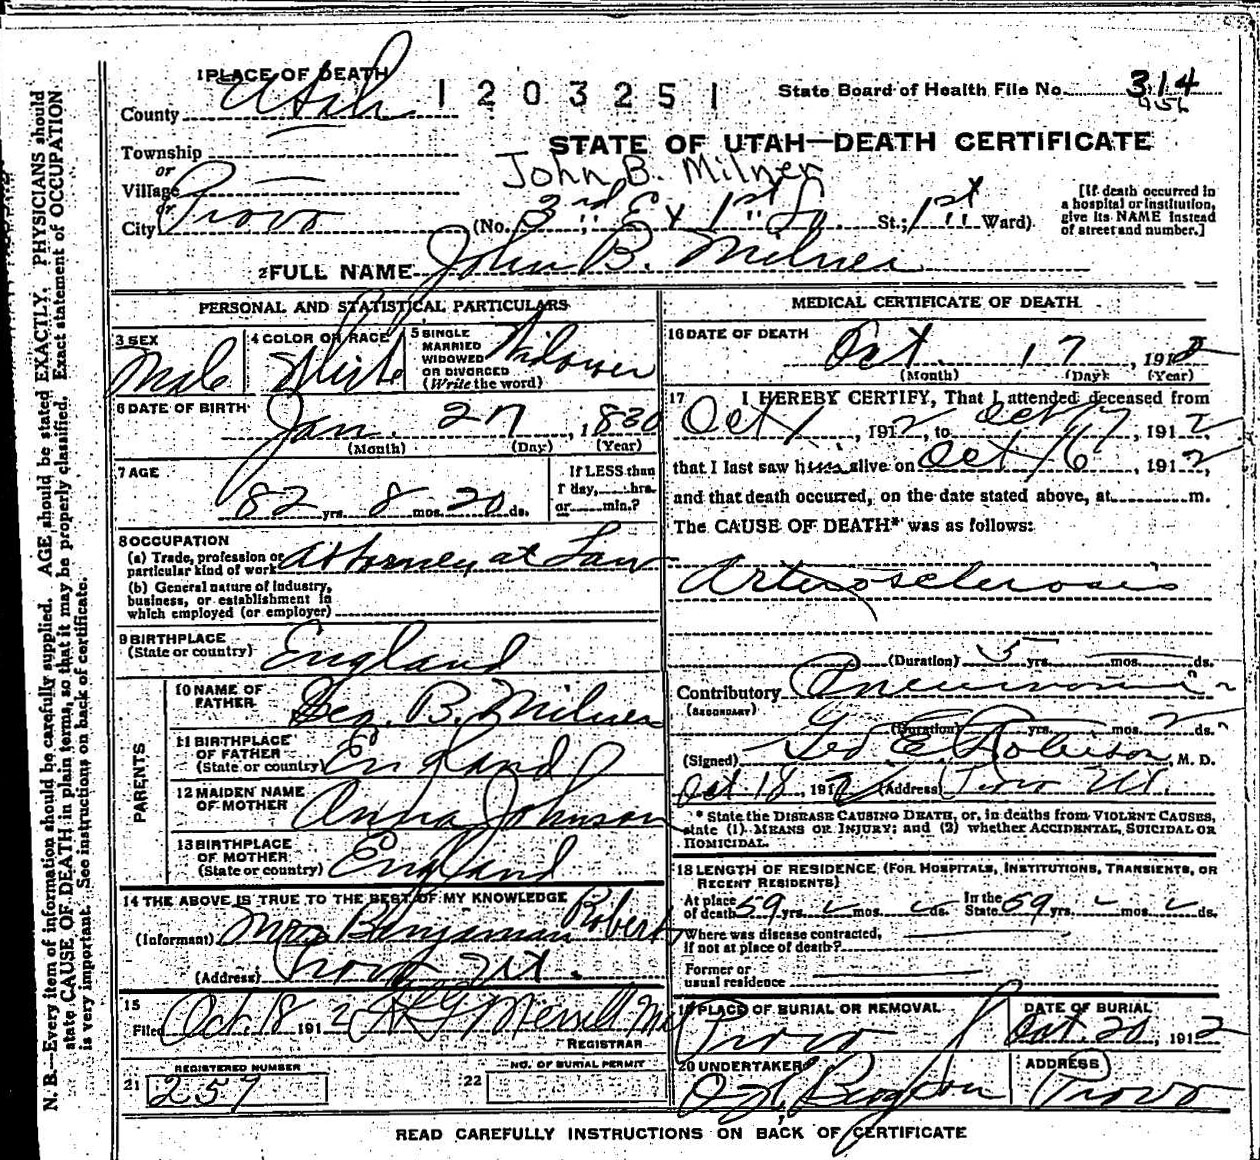 1 PLACE OF DEATH
County Utah
1203251
State Board of Health File No. 314
956
Township
or
Village
or
City Provo
STATE OF UTAH—DEATH CERTIFICATE
John B. Milner
(No. 3rd E x 1st So. St.; 1st Ward)
[If death occurred in a hospital or institution, give its NAME instead of street and number.]
2 FULL NAME John B. Milner
PERSONAL AND STATISTICAL PARTICULARS
3 SEX
Male
4 COLOR OR RACE
White
5 SINGLE
MARRIED
WIDOWED
OR DIVORCED
(Write the word)
Widower
6 DATE OF BIRTH
Jan. 27, 1830
(Month) (Day) (Year)
7 AGE
82 yrs. 8 mos. 20 ds.
If LESS than
1 day, hrs.
or min.?
8 OCCUPATION
(a) Trade, profession or
particular kind of work Attorney at Law
(b) General nature of industry,
business, or establishment in
which employed (or employer)
9 BIRTHPLACE
(State or country) England
PARENTS
10 NAME OF
FATHER Geo. B. Milner
11 BIRTHPLACE
OF FATHER
(State or country) England
12 MAIDEN NAME
OF MOTHER Anna Johnson
13 BIRTHPLACE
OF MOTHER
(State or country) England
14 THE ABOVE IS TRUE TO THE BEST OF MY KNOWLEDGE
(Informant) Mrs Benjaman Robert
(Address) Provo Ut.
15
Filed Oct. 18 1912 Merrill
REGISTRAR
REGISTERED NUMBER
21 259
NO. OF BURIAL PERMIT
22
MEDICAL CERTIFICATE OF DEATH
16 DATE OF DEATH
Oct. 17, 1912
(Month) (Day) (Year)
17 I HEREBY CERTIFY, That I attended deceased from
Oct 1, 1912, to Oct 17, 1912,
that I last saw him alive on Oct 16, 1912,
and that death occurred, on the date stated above, at m.
The CAUSE OF DEATH* was as follows:
Arteriosclerosis
(Duration) 5 yrs. mos. ds.
Contributory Pneumonia
(SECONDARY)
(Duration) yrs. mos. 2 ds.
(Signed) Fred E. Robinson, M. D.
Oct 18, 1912 (Address) Provo Ut.
* State the DISEASE CAUSING DEATH, or, in deaths from VIOLENT CAUSES,
state (1) MEANS OR INJURY; and (2) whether ACCIDENTAL, SUICIDAL OR
HOMICIDAL.
18 LENGTH OF RESIDENCE (FOR HOSPITALS, INSTITUTIONS, TRANSIENTS, OR
RECENT RESIDENTS)
At place
of death 59 yrs. mos. ds. In the
State 59 yrs. mos. ds.
Where was disease contracted,
if not at place of death?
Former or
usual residence
19 PLACE OF BURIAL OR REMOVAL
Provo
DATE OF BURIAL
Oct. 20, 1912
20 UNDERTAKER
ADDRESS
Provo
READ CAREFULLY INSTRUCTIONS ON BACK OF CERTIFICATE
N. B.—Every item of information should be carefully supplied. AGE should be stated EXACTLY. PHYSICIANS should
state CAUSE OF DEATH in plain terms, so that it may be properly classified. Exact statement of OCCUPATION
is very important. See instructions on back of certificate.